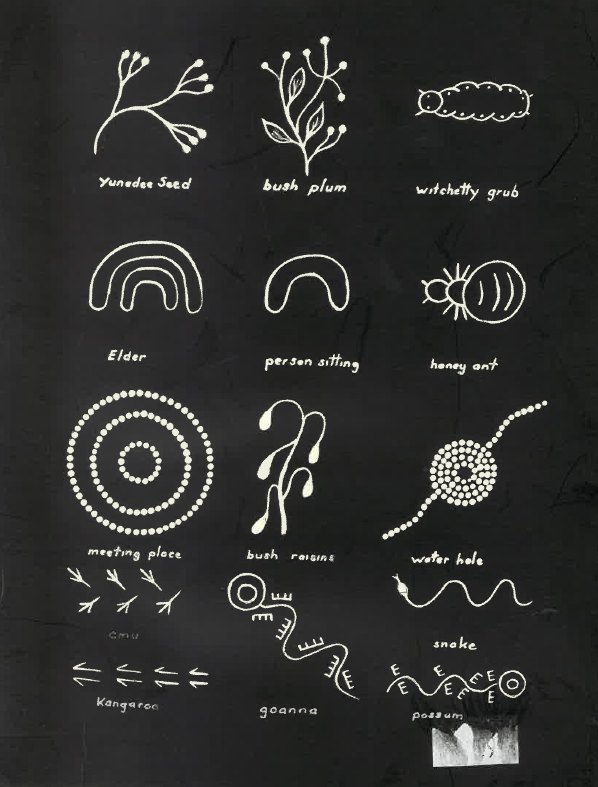 Yunedee Seed
bush plum
witchetty grub
Elder
person sitting
honey ant
meeting place
bush raisins
water hole
emu
snake
Kangaroo
goanna
possum